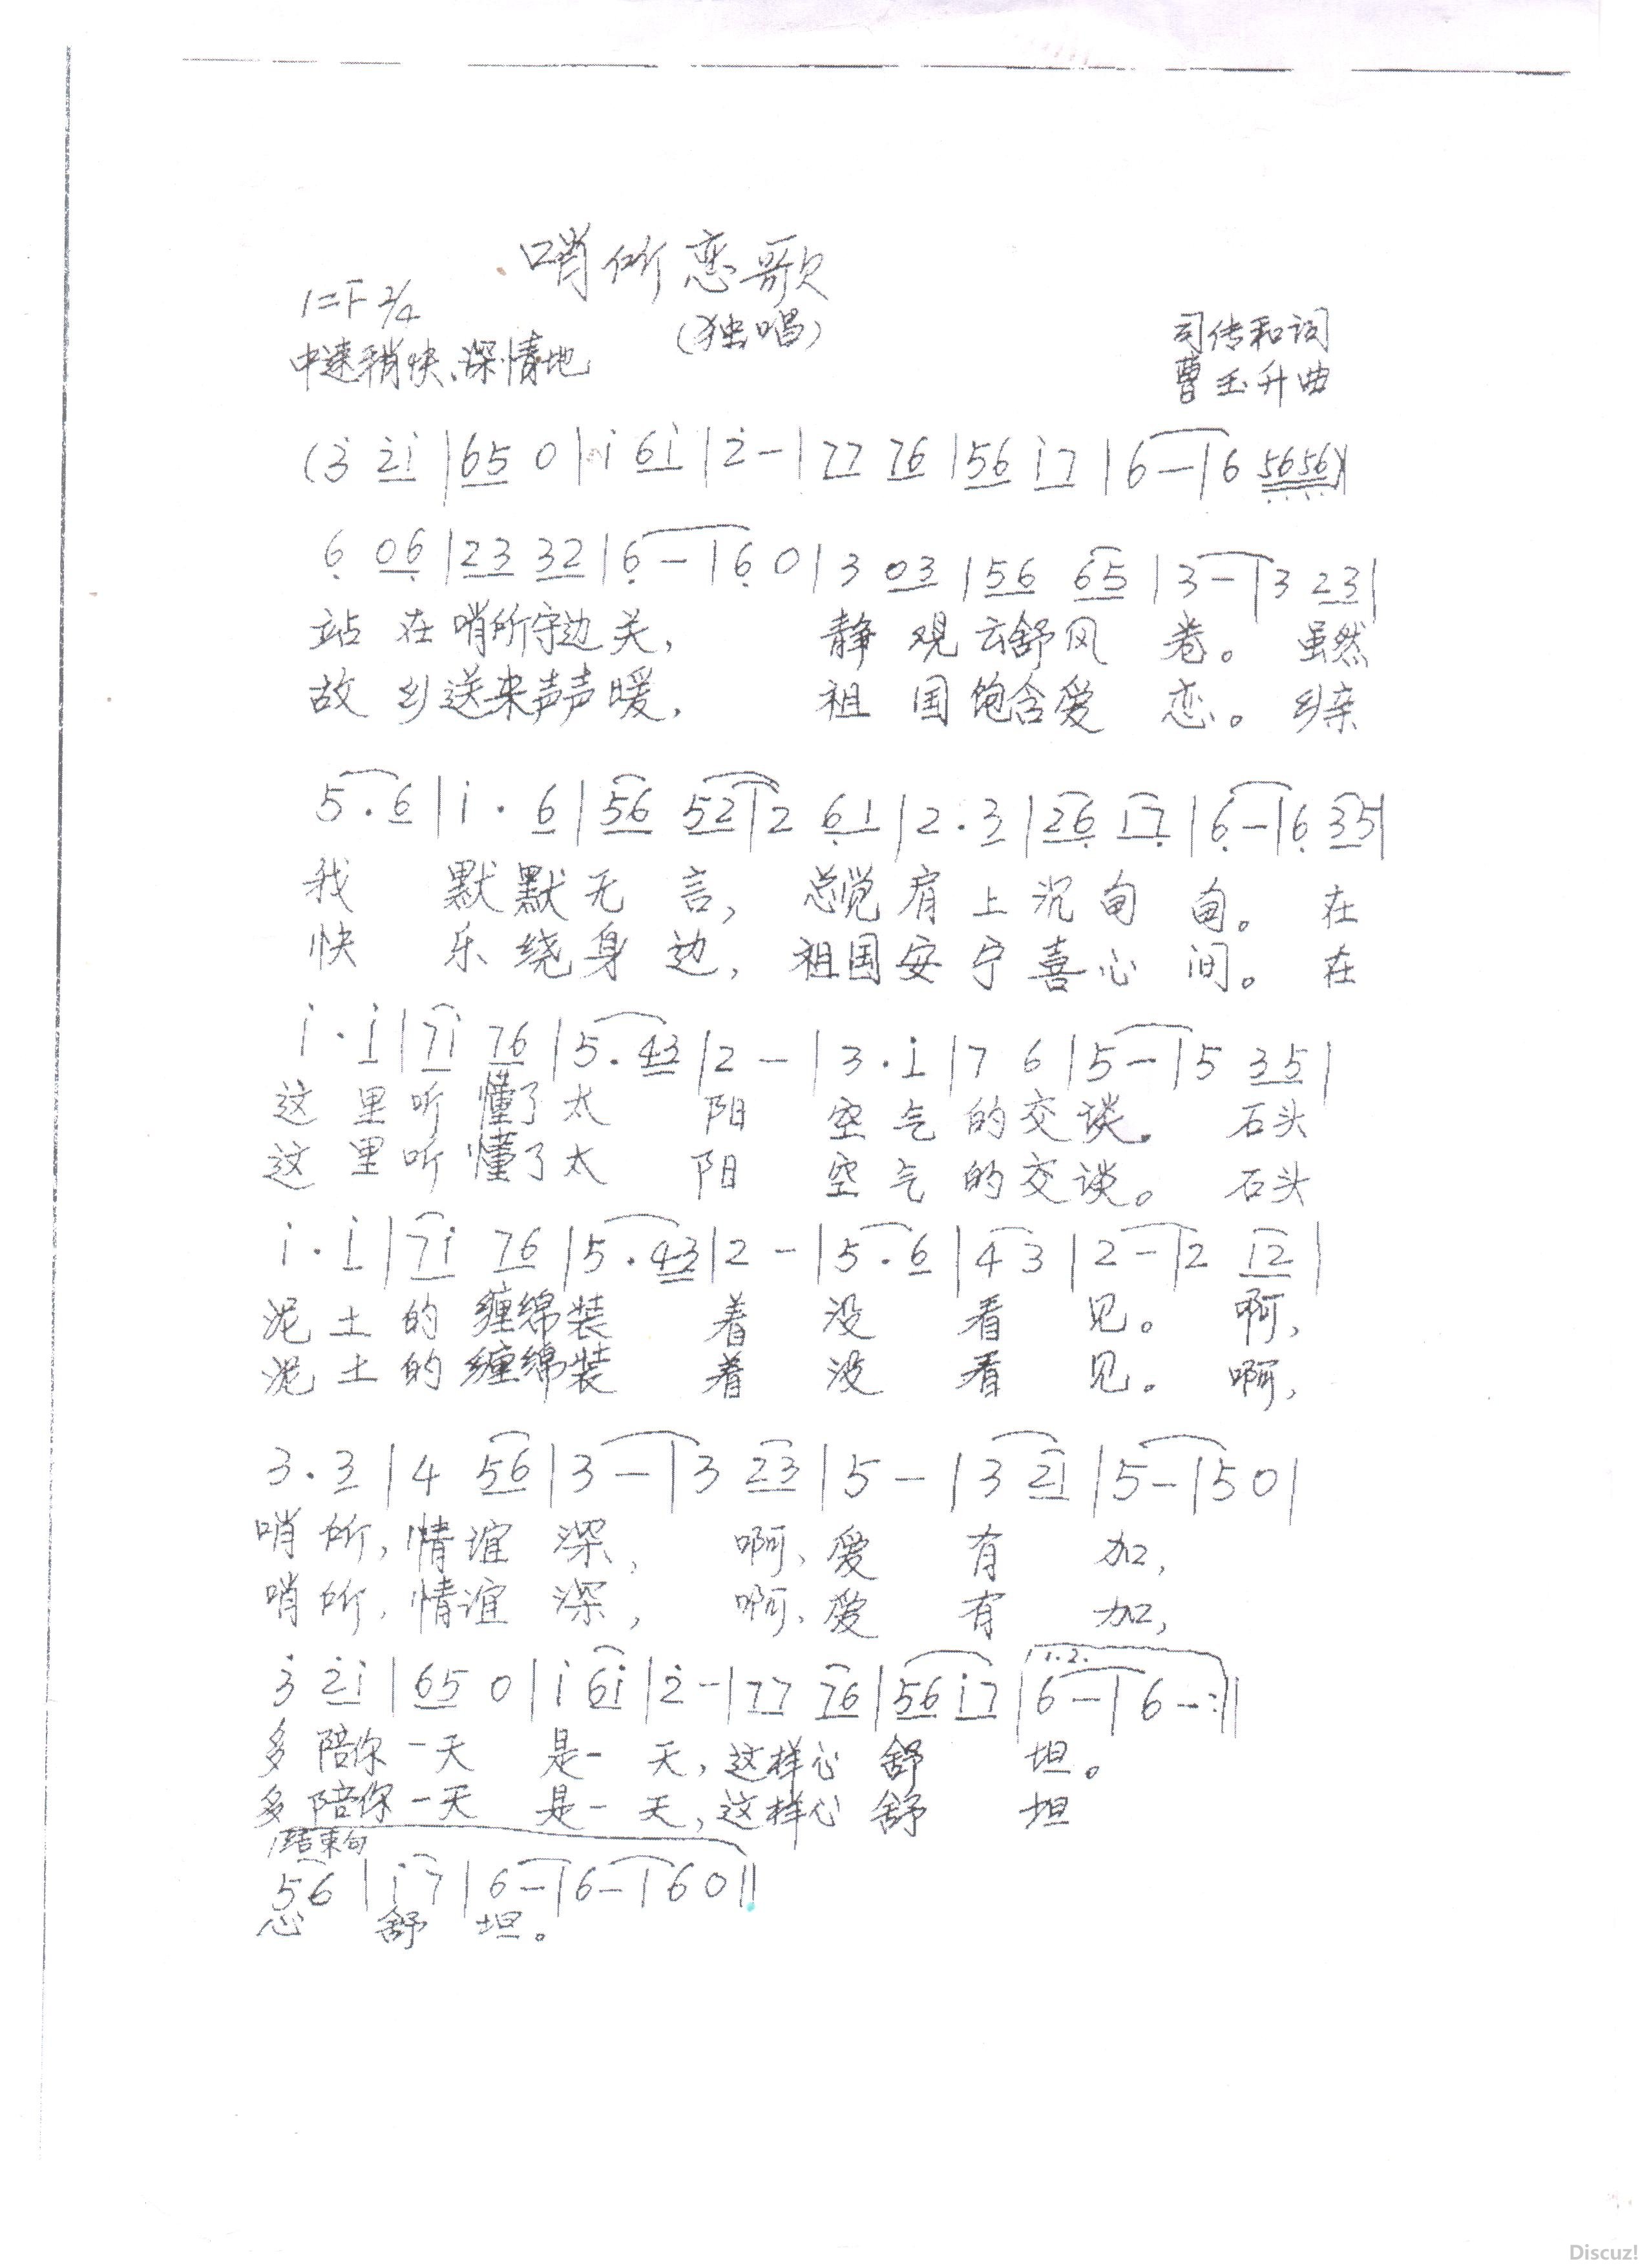 哨所恋歌
1=F 2/4
(独唱)
司传和词
中速稍快、深情地
曹玉升曲
(3̇ 2̇1̇ | 65 0 | 1̇ 61̇ | 2̇ - | 77 76 | 56 1̇7 | 6 - | 6 5656) |
6 06 | 23 32 | 6 - | 6 0 | 3 03 | 56 65 | 3 - | 3 23 |
站在哨所守边关, 静观云舒风卷。虽然
故乡送来声声暖, 祖国饱含爱恋。乡亲
5 . 6 | 1̇ . 6 | 56 52 | 2 61 | 2 . 3 | 26 17 | 6 - | 6 35 |
我默默无言, 总觉肩上沉甸甸。在
快乐绕身边, 祖国安宁喜心间。在
1̇ . 1̇ | 71̇ 76 | 5 . 43 | 2 - | 3 . 1̇ | 7 6 | 5 - | 5 35 |
这里听懂了太阳 空气的交谈。石头
这里听懂了太阳 空气的交谈。石头
1̇ . 1̇ | 71̇ 76 | 5 . 43 | 2 - | 5 . 6 | 4 3 | 2 - | 2 12 |
泥土的缠绵装着没看见。啊,
泥土的缠绵装着没看见。啊,
3 . 3 | 4 56 | 3 - | 3 23 | 5 - | 3 21 | 5 - | 5 0 |
哨所, 情谊深, 啊, 爱有加,
哨所, 情谊深, 啊, 爱有加,
1.2.
3̇ 2̇1̇ | 65 0 | 1̇ 61̇ | 2̇ - | 77 76 | 56 1̇7 | 6 - | 6 - :||
多陪你一天是一天, 这样心舒坦。
多陪你一天是一天, 这样心舒坦
结束句
56 | 1̇7 | 6 - | 6 - | 6 0 ||
心舒坦。
Discuz!